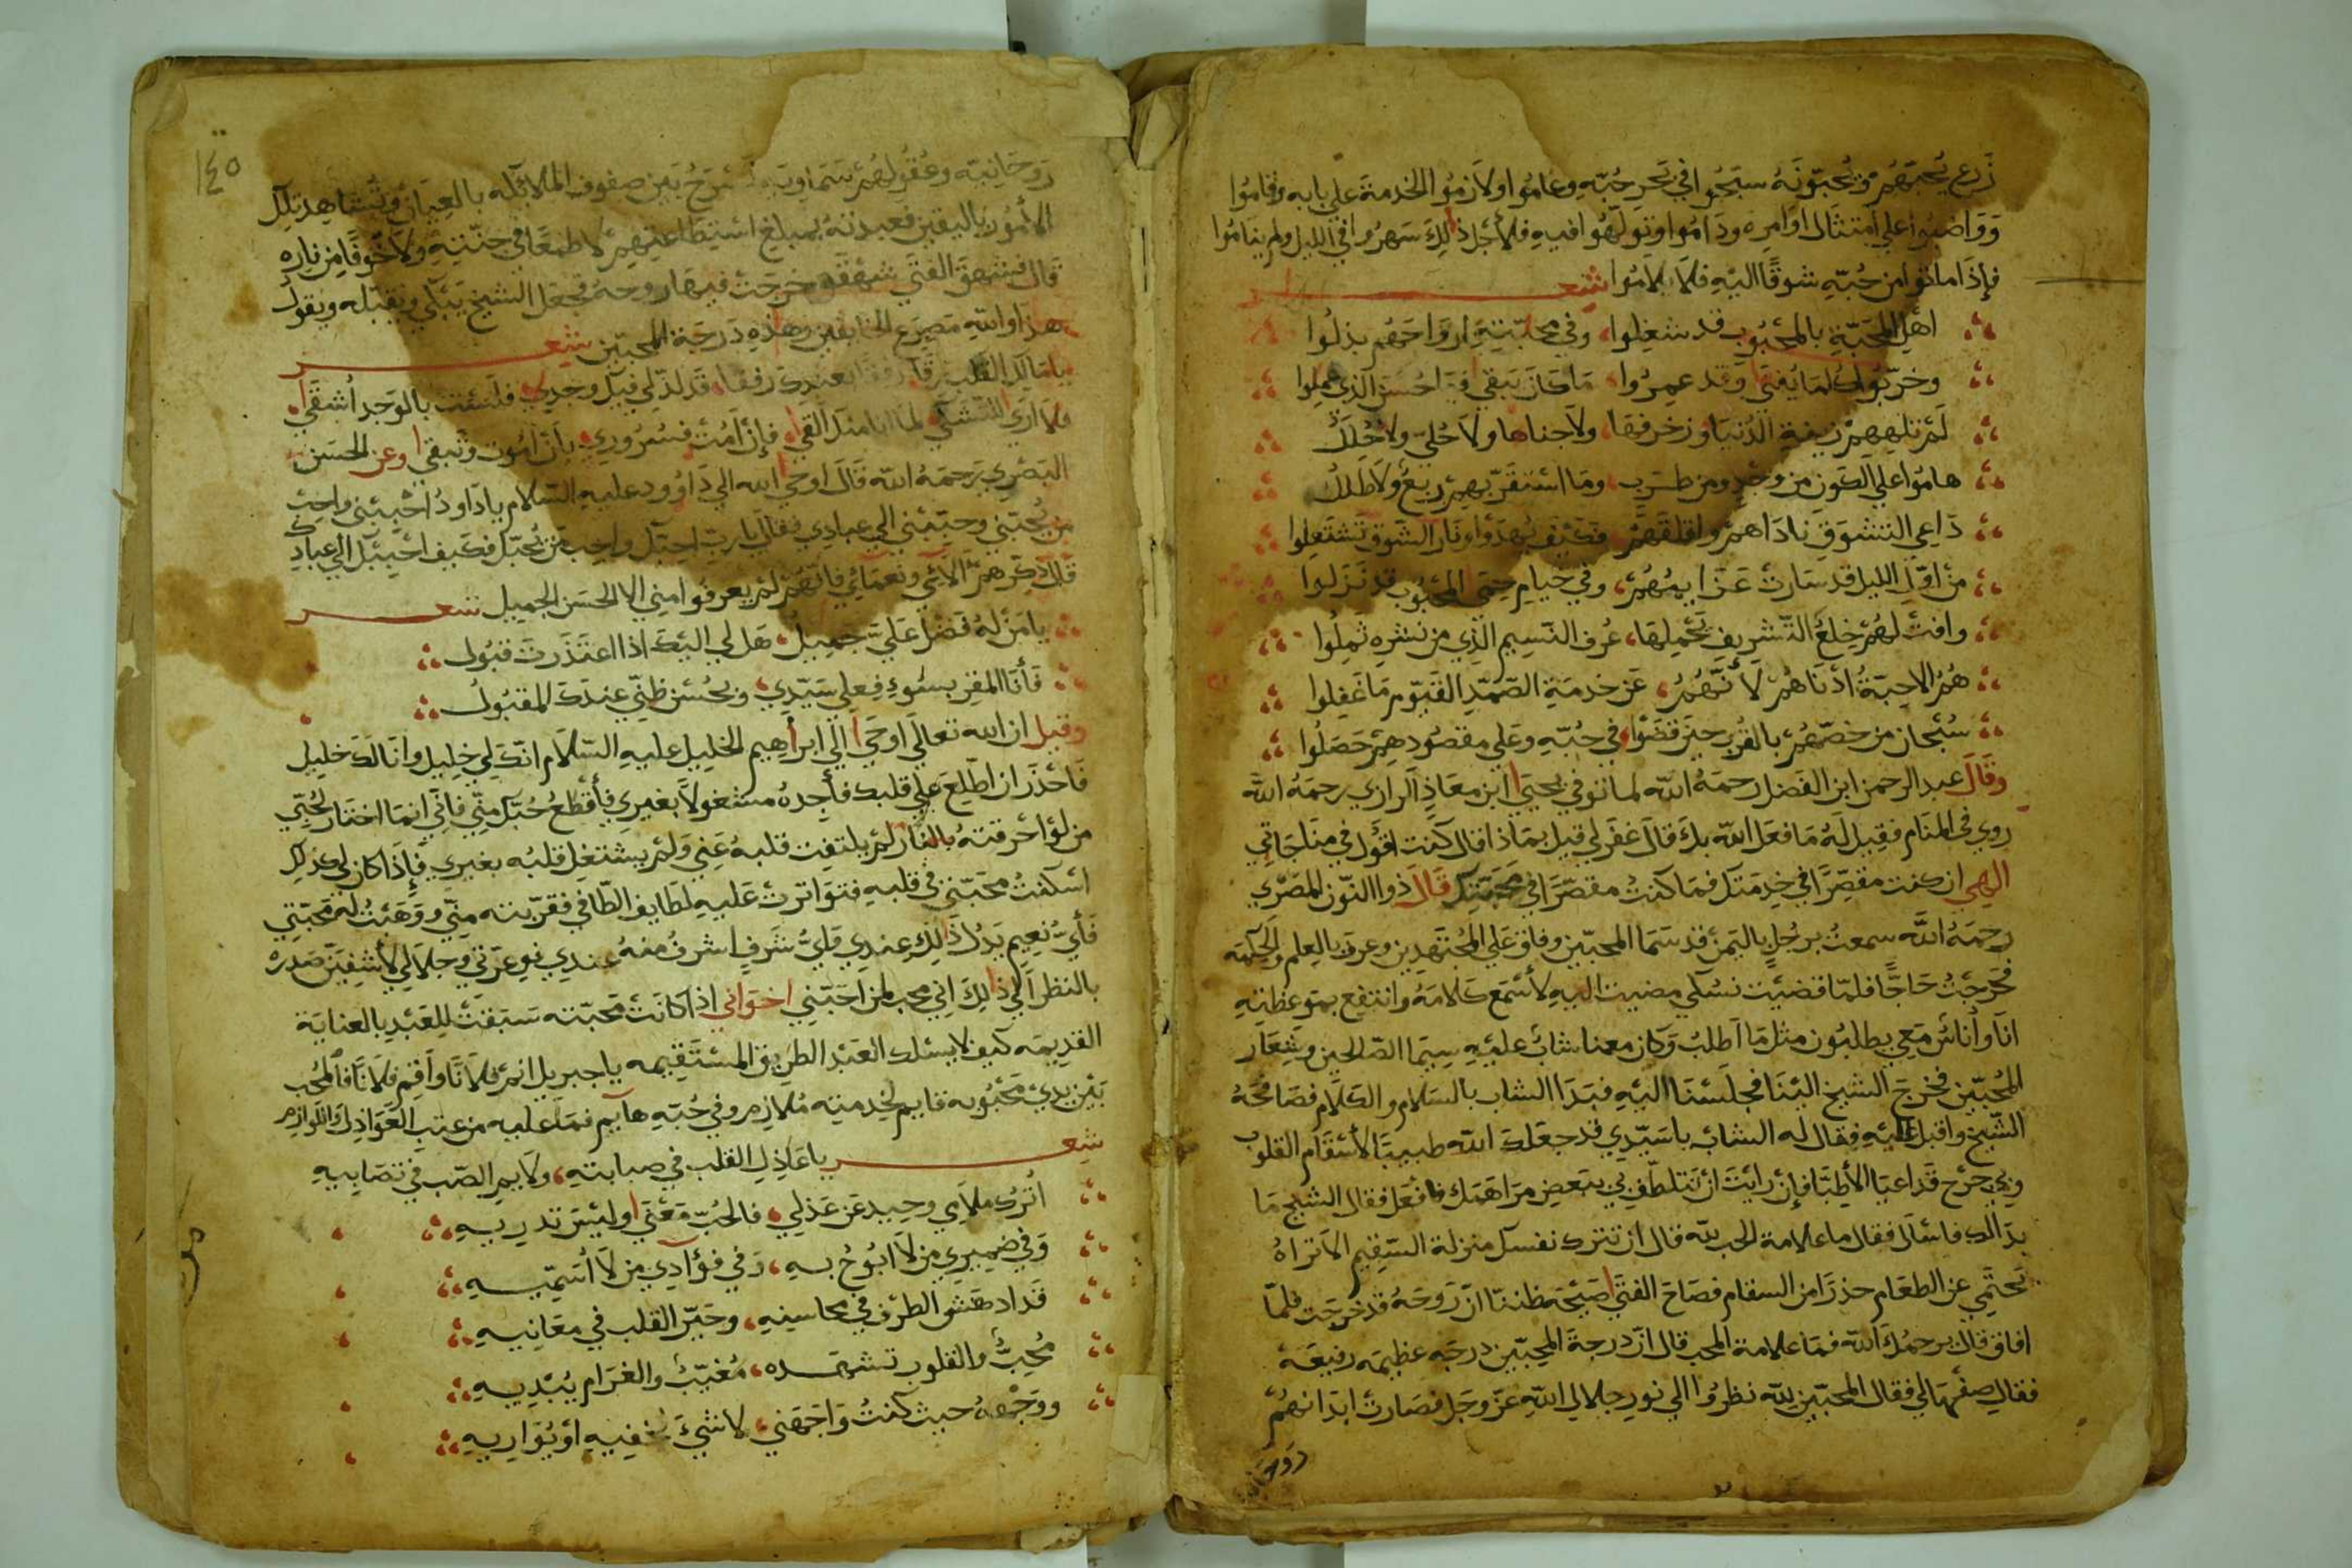 زرع يحبهم ويحبونه سبحوا في بحر حبه وعاموا ولازموا الخدمة علي بابه وقاموا
وواضبوا علي امتثال اوامره وداموا وتولهوا فيه فلأجل ذلك سهروا في الليل ولم يناموا
فإذا ماتوا من حبه شوقا اليه فلا يلاموا شعر
اهل المحبة بالمحبوب قد شغلوا وفي محبته ارواحهم بذلوا
وخربوا كلما يفني وقد عمروا ما كان يبقي فيا حسن الذي عملوا
لم تلههم زينة الدنيا وزخرفها ولا جناها ولا حلي ولا حلل
هاموا علي الكون من وجد ومن طرب وما استقر بهم ربع ولا طلل
داعي التشوق ناداهم واقلقهم فكيف يهدوا ونار الشوق تشتعلوا
من اول الليل قد سارت عزايمهم وفي خيام حمي المحبوب قد نزلوا
وافت لهم خلع التشريف تحملها عرف النسيم الذي من نشره ثملوا
هم الاحبة ادناهم لأنهم عن خدمة الصمد القيوم ما غفلوا
سبحان من خصهم بالقرب حين قضوا في حبه وعلي مقصودهم حصلوا
وقال عبد الرحمن ابن الفضل رحمه الله لما توفي يحيي ابن معاذ الرازي رحمه الله
روي في المنام فقيل له ما فعل الله بك قال غفر لي قيل بماذا قال كنت اقول في مناجاتي
الهي ان كنت مقصرا في خدمتك فما كنت مقصرا في محبتك قال ذوا النون المصري
رحمه الله سمعت برجل باليمن قد سما المحبين وفاق علي المجتهدين وعرف بالعلم والحكمة
فخرجت حاجا فلما قضيت نسكي مضيت اليه لأسمع كلامه وانتفع بموعظته
انا وأناس معي يطلبون مثل ما اطلب وكان معنا شاب عليه سيما الصالحين وشعار
المحبين فخرج الشيخ الينا فجلسنا اليه فبدا الشاب بالسلام والكلام فصافحه
الشيخ واقبل عليه فقال له الشاب يا سيدي قد جعلك الله طبيبا لأسقام القلوب
وبي جرح قد اعيا الأطبا فإن رايت ان تتلطف بي ببعض مراهمك فافعل فقال الشيخ ما
بدا لك فاسأل فقال ما علامة الحب لله قال ان تنزل نفسك منزلة السقيم الا تراه
يحتمي عن الطعام حذرا من السقام فصاح الفتي صيحة ظننا ان روحه قد خرجت فلما
افاق قال يرحمك الله فما علامة المحب قال ان درجة المحبين درجة عظيمة رفيعة
فقال صفها لي فقال المحبين لله نظروا الي نور جلال الله عز وجل فصارت ابدانهم
١٤٥
روحانية وعقولهم سماوية تسرح بين صفوف الملائكة بالعيان وتشاهد تلك
الأمور باليقين فعبدته بمبلغ استطاعتهم لا طمعا في جنته ولا خوفا من ناره
قال فشهق الفتي شهقة خرجت فيها روحه فجعل الشيخ يبكي ويقبله ويقول
هذا والله مصرع الخايفين وهذه درجة المحبين شعر
يا مالك القلب رفقا بعبدك رفقا قد لذ لي فيك وجدي فلست بالوجد أشقي
ولا اري التشكي لما انا منك القي فإن أمت فسروري بأن أموت وتبقي وعن الحسن
البصري رحمه الله قال اوحي الله الي داوود عليه السلام يا داود احببني واحب
من يحبني وحببني الي عبادي فقال يا رب احبك واحب من يحبك فكيف احببك الي عبادك
قال ذكرهم الآئي ونعمآئي فانهم لم يعرفوا مني الا الحسن الجميل شعر
يا من له فضل علي جميل هل لي اليك اذا اعتذرت قبول
فأنا المقر بسوء فعلي سيدي وبحسن ظني عندك المقبول
وقيل ان الله تعالي اوحي الي ابراهيم الخليل عليه السلام انك لي خليل وانا لك خليل
فاحذر ان اطلع علي قلبك فأجده مشغولا بغيري فأقطع حبك مني فاني انما اختار لحبي
من لو احرقته بالنار لم يلتفت قلبه عني ولم يشتغل قلبه بغيري فإذا كان لي كذلك
اسكنت محبتي في قلبه فتواترت عليه لطايف الطافي فقربته مني ووهبت له محبتي
فأي نعيم يدل ذلك عندي فأي شرف اشرف منه عندي فوعزتي وجلالي لأشفين صدره
بالنظر الي ذلك اني محب لمن احبني اخواني اذا كانت محبته سبقت للعبد بالعناية
القديمه كيف لا يسلك العبد الطريق المستقيمه يا جبريل انم فلانا واقم فلانا فالمحب
بين يدي محبوبه قايم لخدمته ملازم وفي حبه هايم فما عليه من عتب العواذل واللوازم
شعر يا عاذل القلب في صبابته ولايم الصب في تصابيه
اترك ملامي وحيد عن عذلي فالحب معني وليس تدريه
وفي ضميري من لا ابوح به وفي فؤادي من لا أسميه
قد ادهش الطرف في محاسنه وحير القلب في معانيه
محجب والقلوب تشهده مغيب والغرام يبديه
ووجهه حيث كنت واجهني لا شيء يخفيه او يواريه